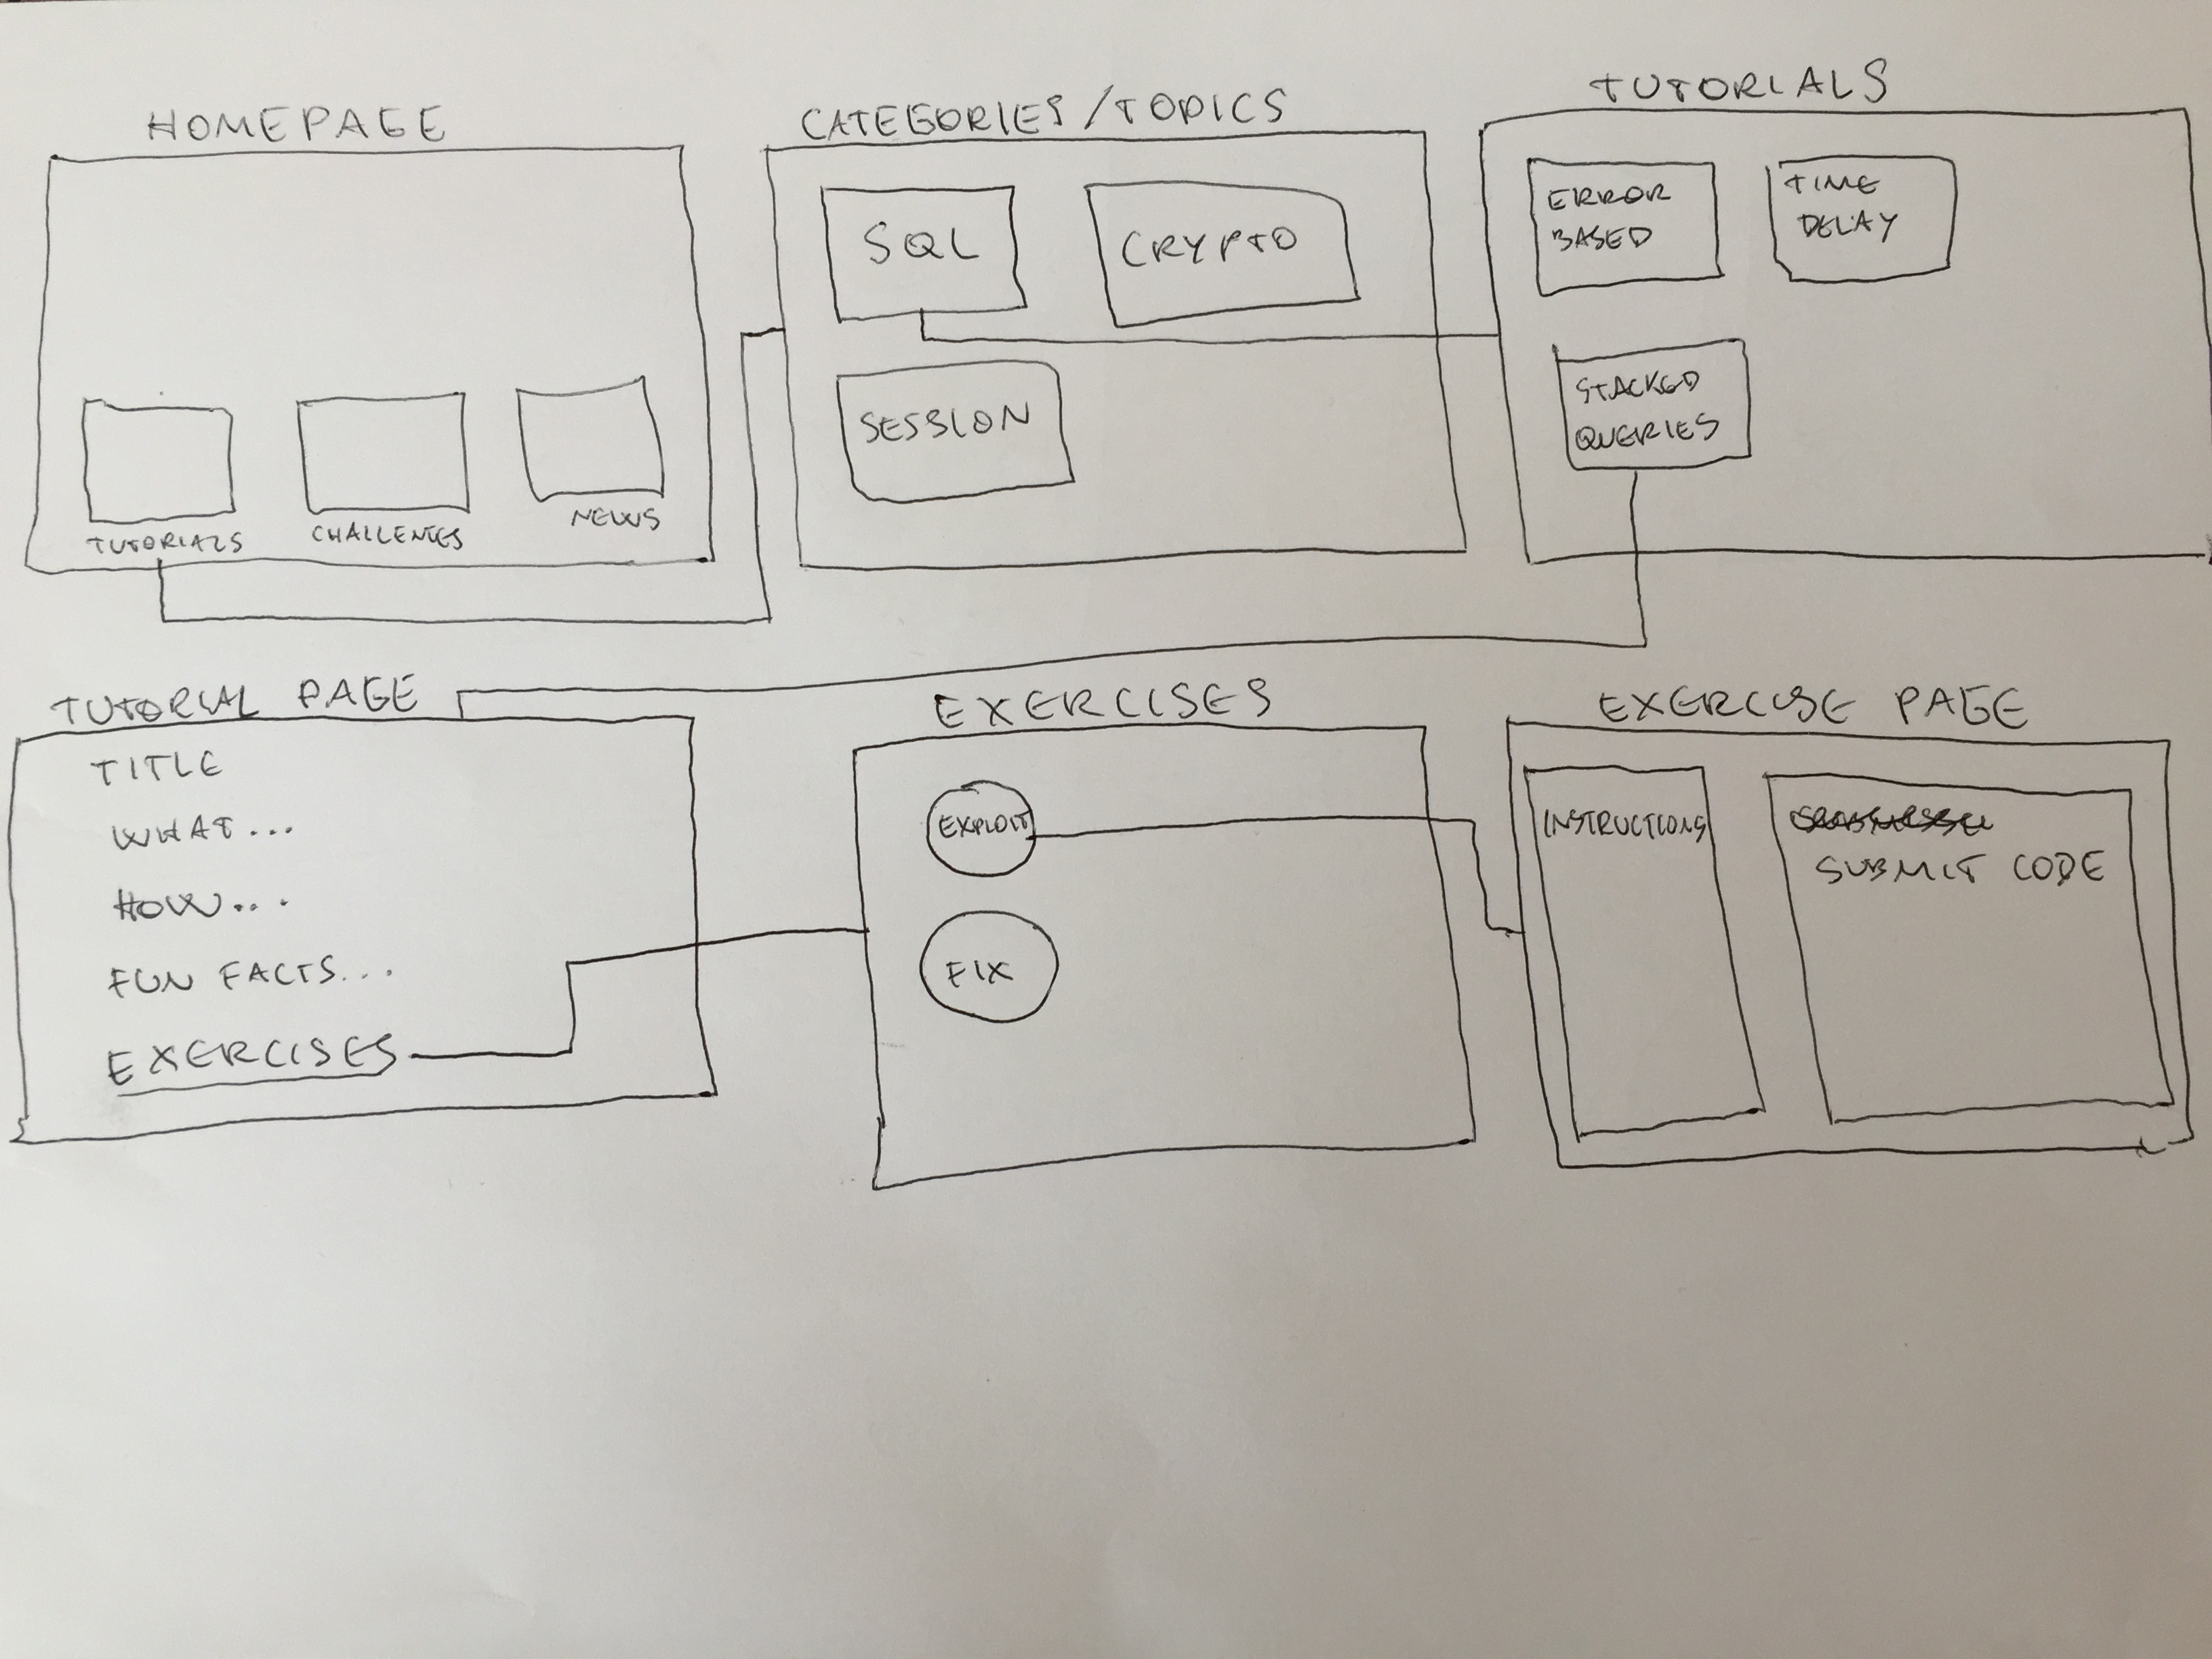 HOMEPAGE
TUTORIALS
CHALLENGES
NEWS
CATEGORIES/TOPICS
SQL
CRYPTO
SESSION
TUTORIALS
ERROR
BASED
TIME
DELAY
STACKED
QUERIES
TUTORIAL PAGE
TITLE
WHAT...
HOW...
FUN FACTS...
EXERCISES
EXERCISES
EXPLOIT
FIX
EXERCISE PAGE
INSTRUCTIONS
SUBMIT CODE